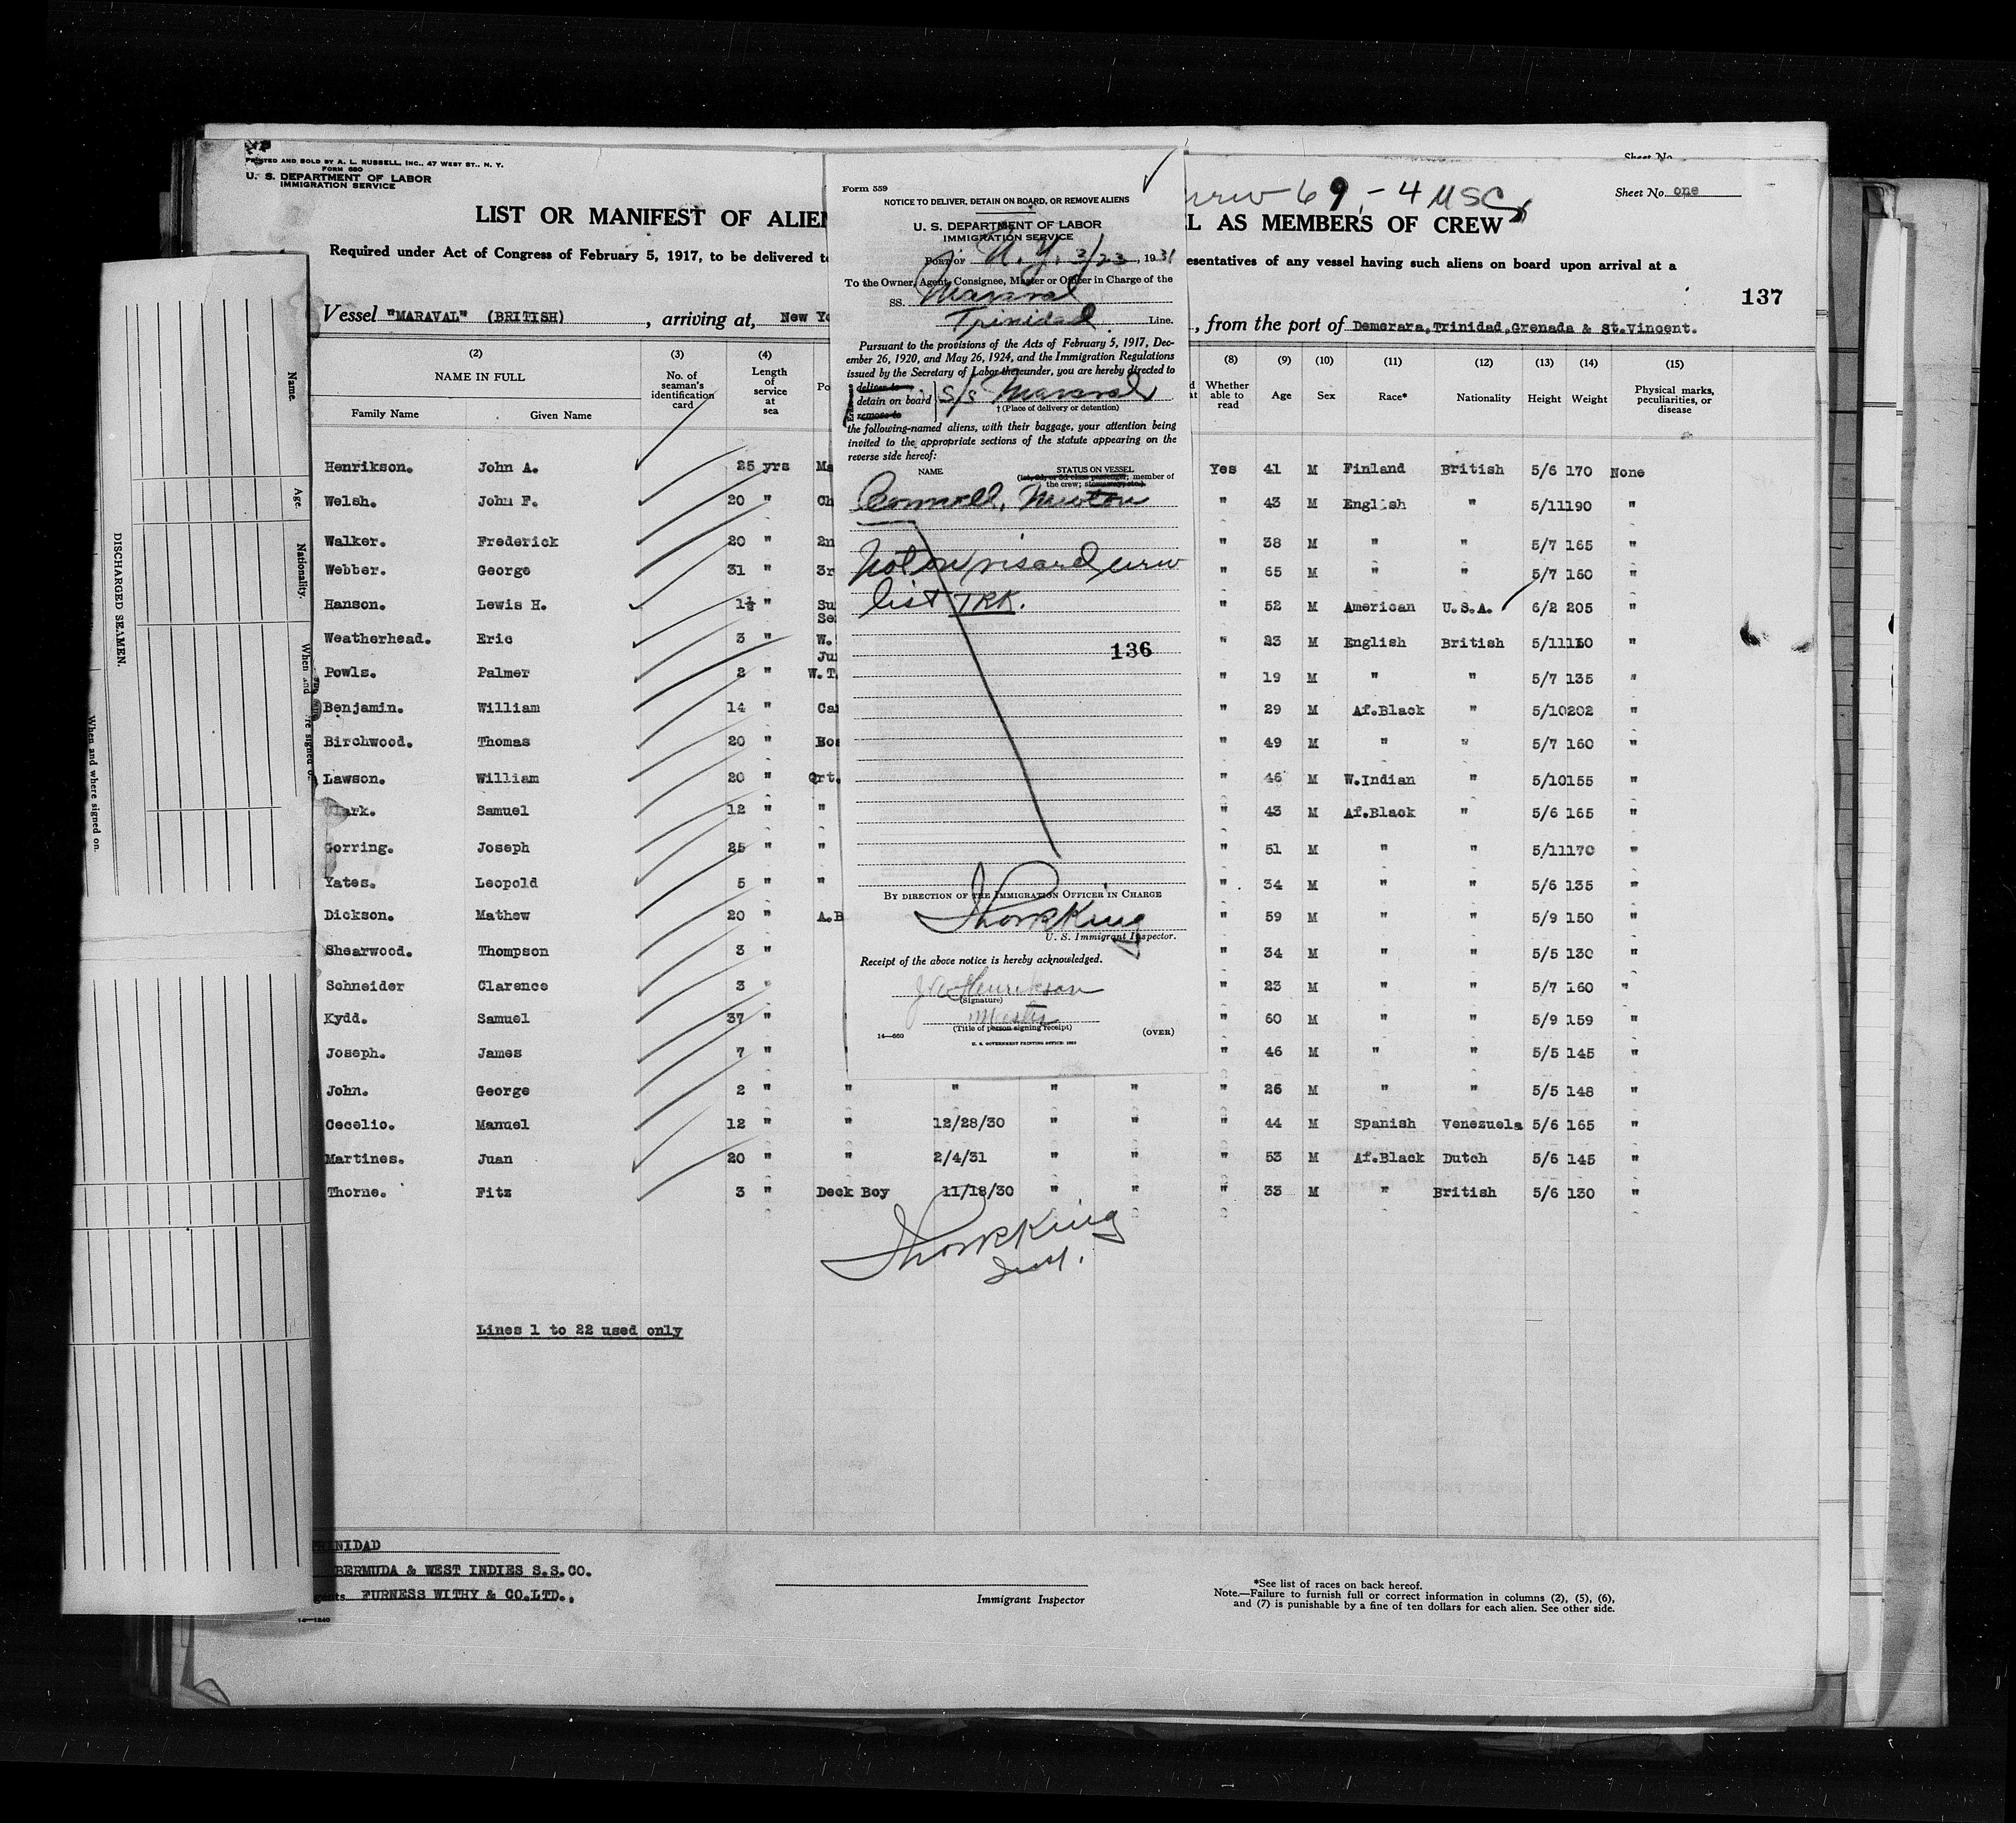 PRINTED AND SOLD BY A. L. RUSSELL, INC., 47 WEST ST., N. Y.
FORM 680
U. S. DEPARTMENT OF LABOR
IMMIGRATION SERVICE
Sheet No.
Sheet No. one
69 - 4 USC
LIST OR MANIFEST OF ALIEN
L AS MEMBERS OF CREW
Required under Act of Congress of February 5, 1917, to be delivered to
esentatives of any vessel having such aliens on board upon arrival at a
137
Vessel "MARAVAL" (BRITISH) , arriving at, New Yo
, from the port of Demerara,Trinidad,Grenada & St.Vincent.
(2) (3) (4) (8) (9) (10) (11) (12) (13) (14) (15)
NAME IN FULL
Family Name Given Name
No. of seaman's identification card
Length of service at sea
Po
Whether able to read
Age Sex Race* Nationality Height Weight
Physical marks, peculiarities, or disease
Henrikson. John A. 25 yrs Ma Yes 41 M Finland British 5/6 170 None
Welsh. John F. 20 " Ch " 43 M English " 5/11 190 "
Walker. Frederick 20 " 2n " 38 M " " 5/7 165 "
Webber. George 31 " 3r " 65 M " " 5/7 160 "
Hanson. Lewis H. 1½ " Su " 52 M American U.S.A. 6/2 205 "
Se
Weatherhead. Eric 3 " W. " 23 M English British 5/11 "
Ju
Powls. Palmer 2 " W.T. " 19 M " " 5/7 135 "
Benjamin. William 14 " Ca " 29 M Af.Black " 5/10 202 "
Birchwood. Thomas 20 " Bos " 49 M " " 5/7 160 "
Lawson. William 20 " Qrt. " 46 M W.Indian " 5/10 155 "
Clark. Samuel 12 " " " 43 M Af.Black " 5/6 165 "
Gorring. Joseph 25 " " " 51 M " " 5/11 170 "
Yates. Leopold 5 " " " 34 M " " 5/6 135 "
Dickson. Mathew 20 " A.B " 59 M " " 5/9 150 "
Shearwood. Thompson 3 " " 34 M " " 5/5 130 "
Schneider Clarence 3 " " 23 M " " 5/7 160 "
Kydd. Samuel 37 " " 60 M " " 5/9 159 "
Joseph. James 7 " " 46 M " " 5/5 145 "
John. George 2 " " " " " " 26 M " " 5/5 148 "
Cecelio. Manuel 12 " " 12/28/30 " " " 44 M Spanish Venezuela 5/6 165 "
Martines. Juan 20 " " 2/4/31 " " " 53 M Af.Black Dutch 5/6 145 "
Thorne. Fitz 3 " Deck Boy 11/18/30 " " " 33 M " British 5/6 130 "
Lines 1 to 22 used only
TRINIDAD
BERMUDA & WEST INDIES S.S.CO.
gents FURNESS WITHY & CO.LTD.,
14—1240
Immigrant Inspector
*See list of races on back hereof.
Note.—Failure to furnish full or correct information in columns (2), (5), (6),
and (7) is punishable by a fine of ten dollars for each alien. See other side.
Form 559
NOTICE TO DELIVER, DETAIN ON BOARD, OR REMOVE ALIENS
U. S. DEPARTMENT OF LABOR
IMMIGRATION SERVICE
PORT OF N. Y. 3/23, 1931
To the Owner, Agent, Consignee, Master or Officer in Charge of the
SS. Maraval
Trinidad Line.
Pursuant to the provisions of the Acts of February 5, 1917, Dec-
ember 26, 1920, and May 26, 1924, and the Immigration Regulations
issued by the Secretary of Labor thereunder, you are hereby directed to
deliver to
detain on board S/s Maraval
remove to
† (Place of delivery or detention)
the following-named aliens, with their baggage, your attention being
invited to the appropriate sections of the statute appearing on the
reverse side hereof:
NAME STATUS ON VESSEL
(1st, 2d, or 3d class passenger; member of
the crew; stowaway, etc.)
Connell, Newton
Not on visaed crew
list TRK.
136
BY DIRECTION OF THE IMMIGRATION OFFICER IN CHARGE
U. S. Immigrant Inspector.
Receipt of the above notice is hereby acknowledged.
J A Henrikson
(Signature)
Master
(Title of person signing receipt)
14—660 (OVER)
U. S. GOVERNMENT PRINTING OFFICE: 1929
DISCHARGED SEAMEN.
Name.
Age.
Nationality.
When and where signed on.